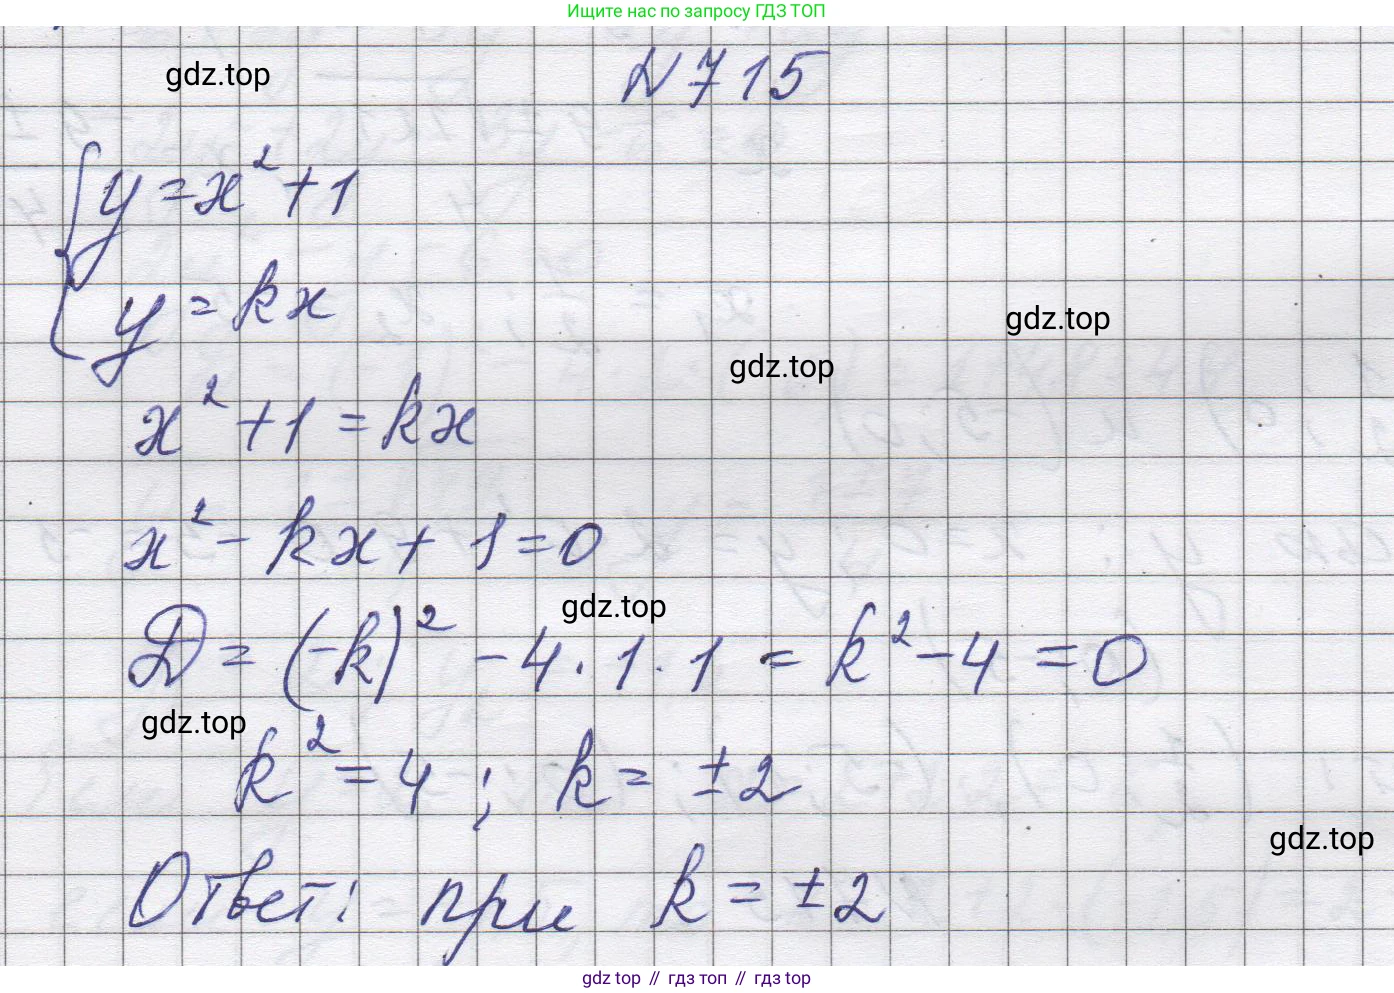 Ищите нас по запросу ГДЗ ТОП
gdz.top
N 715
y = x² + 1
y = kx
gdz.top
gdz.top
x² + 1 = kx
x² - kx + 1 = 0
gdz.top
D = (-k)² - 4 · 1 · 1 = k² - 4 = 0
gdz.top
k² = 4 ; k = ±2
gdz.top
Ответ: при k = ±2
gdz top // гдз топ // гдз top